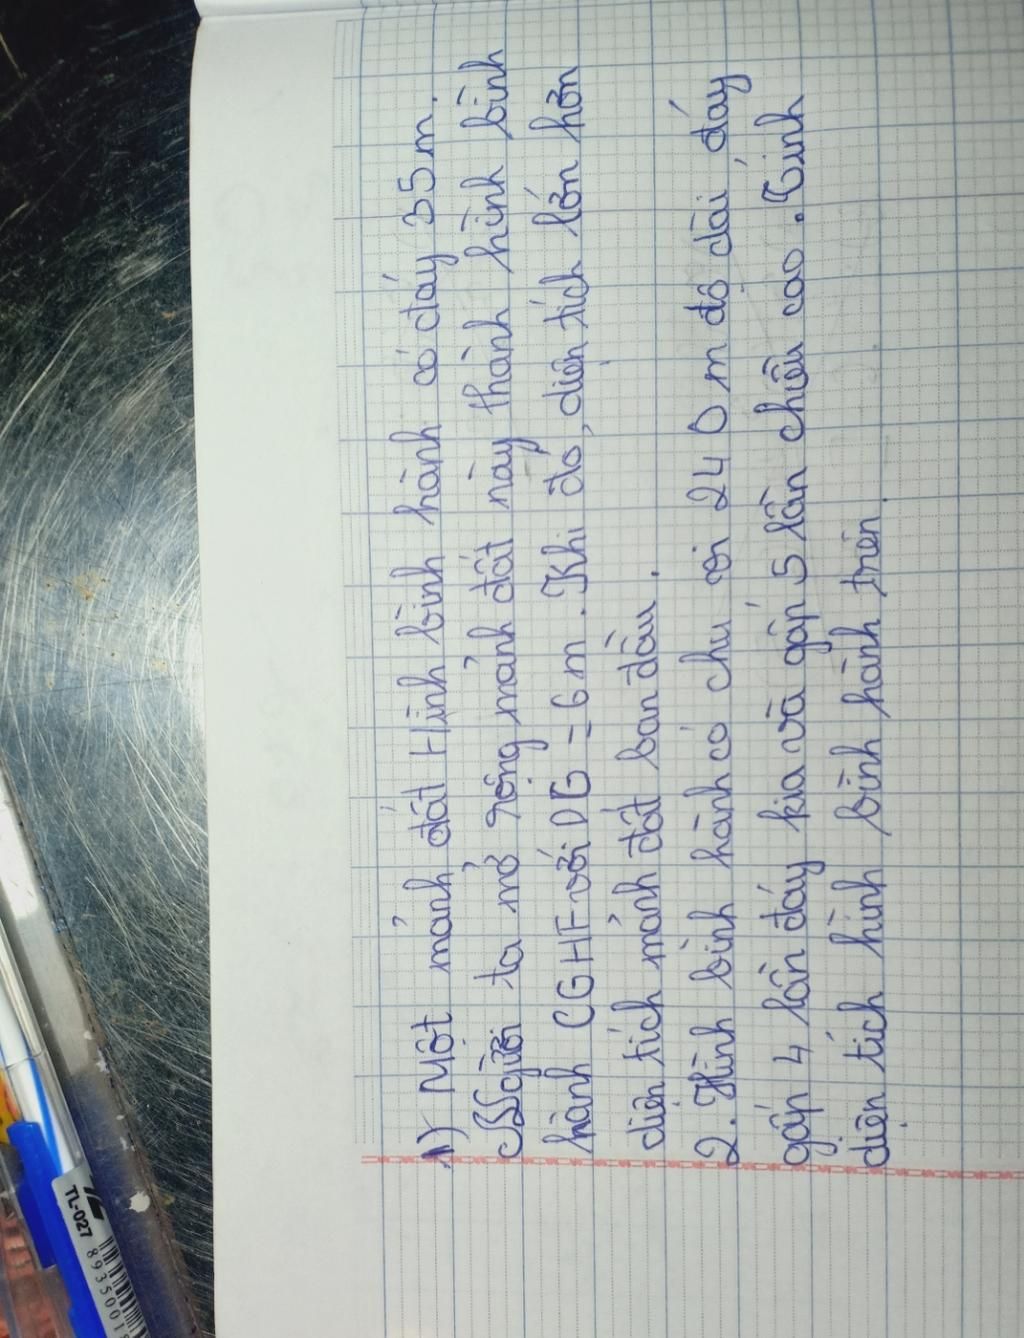 1) Một mảnh đất Hình bình hành có đáy 35m.
Người ta mở rộng mảnh đất này thành hình bình
hành CGHF với DG = 6m. Khi đó, diện tích lớn hơn
diện tích mảnh đất ban đầu.
2. Hình bình hành có chu vi 240m độ dài đáy
gấp 4 lần đáy kia và gấp 5 lần chiều cao. Tính
diện tích hình bình hành trên.
TL-027
8935001